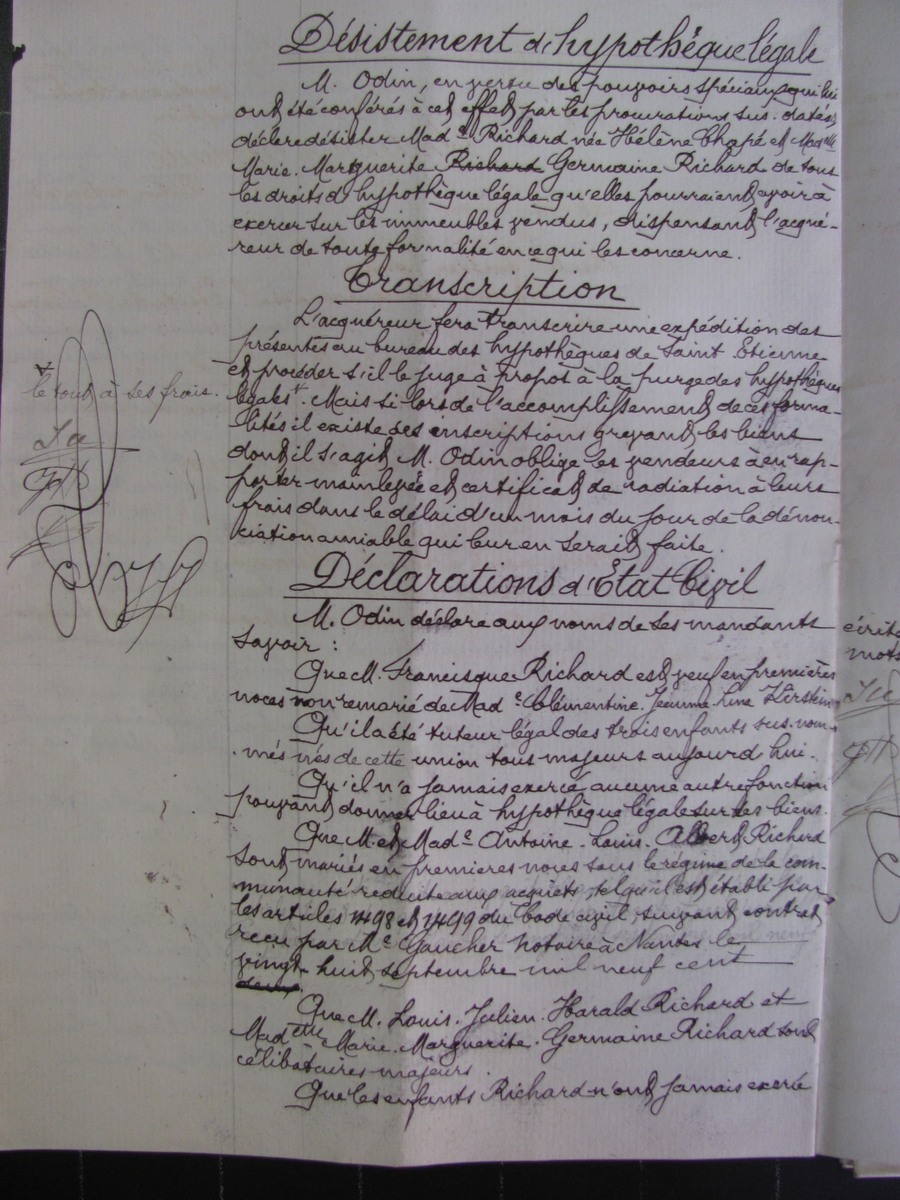 Désistement d'hypothèque légale
M. Odin, en vertu des pouvoirs spéciaux qui lui
ont été conférés à cet effet par les procurations sus-datées
déclare désister Mad.e Richard née Hélène Chapé et Madelle
Marie-Marguerite Richard Germaine Richard de tous
les droits d'hypothèque légale qu'elles pourraient avoir à
exercer sur les immeubles vendus, dispensant l'acqué-
reur de toute formalité en ce qui les concerne.
Transcription
L'acquéreur fera transcrire une expédition des
présentes au bureau des hypothèques de Saint Etienne
et procéder s'il le juge à propos à la purge des hypothèques
légales +. Mais si lors de l'accomplissement de ces forma-
lités il existe des inscriptions grevant les biens
dont il s'agit M. Odin oblige les vendeurs à en rap-
porter mainlevée et certificat de radiation à leurs
frais dans le délai d'un mois du jour de la dénon-
ciation amiable qui leur en serait faite.
+
le tout à ses frais.
Déclarations d'Etat Civil
M. Odin déclare aux noms de ses mandants
savoir :
Que M. Francisque Richard est veuf en premières
noces non remarié de Mad.e Clémentine-Jeanne-Line
Qu'il a été tuteur légal des trois enfants sus-nom-
més nés de cette union tous majeurs aujourd'hui.
Qu'il n'a jamais exercé aucune autre fonction
pouvant donner lieu à hypothèque légale sur ses biens.
Que M. et Mad.e Antoine-Louis-Albert Richard
sont mariés en premières noces sous le régime de la com-
munauté réduite aux acquêts, tel qu'il est établi par
les articles 1498 et 1499 du Code civil, suivant contrat
reçu par Me Gaucher notaire à Nantes le
vingt-huit septembre mil neuf cent
deux.
Que M. Louis-Julien-Harald Richard et
Madelle Marie-Marguerite-Germaine Richard sont
célibataires majeurs.
Que les enfants Richard n'ont jamais exercé
écrits
mots